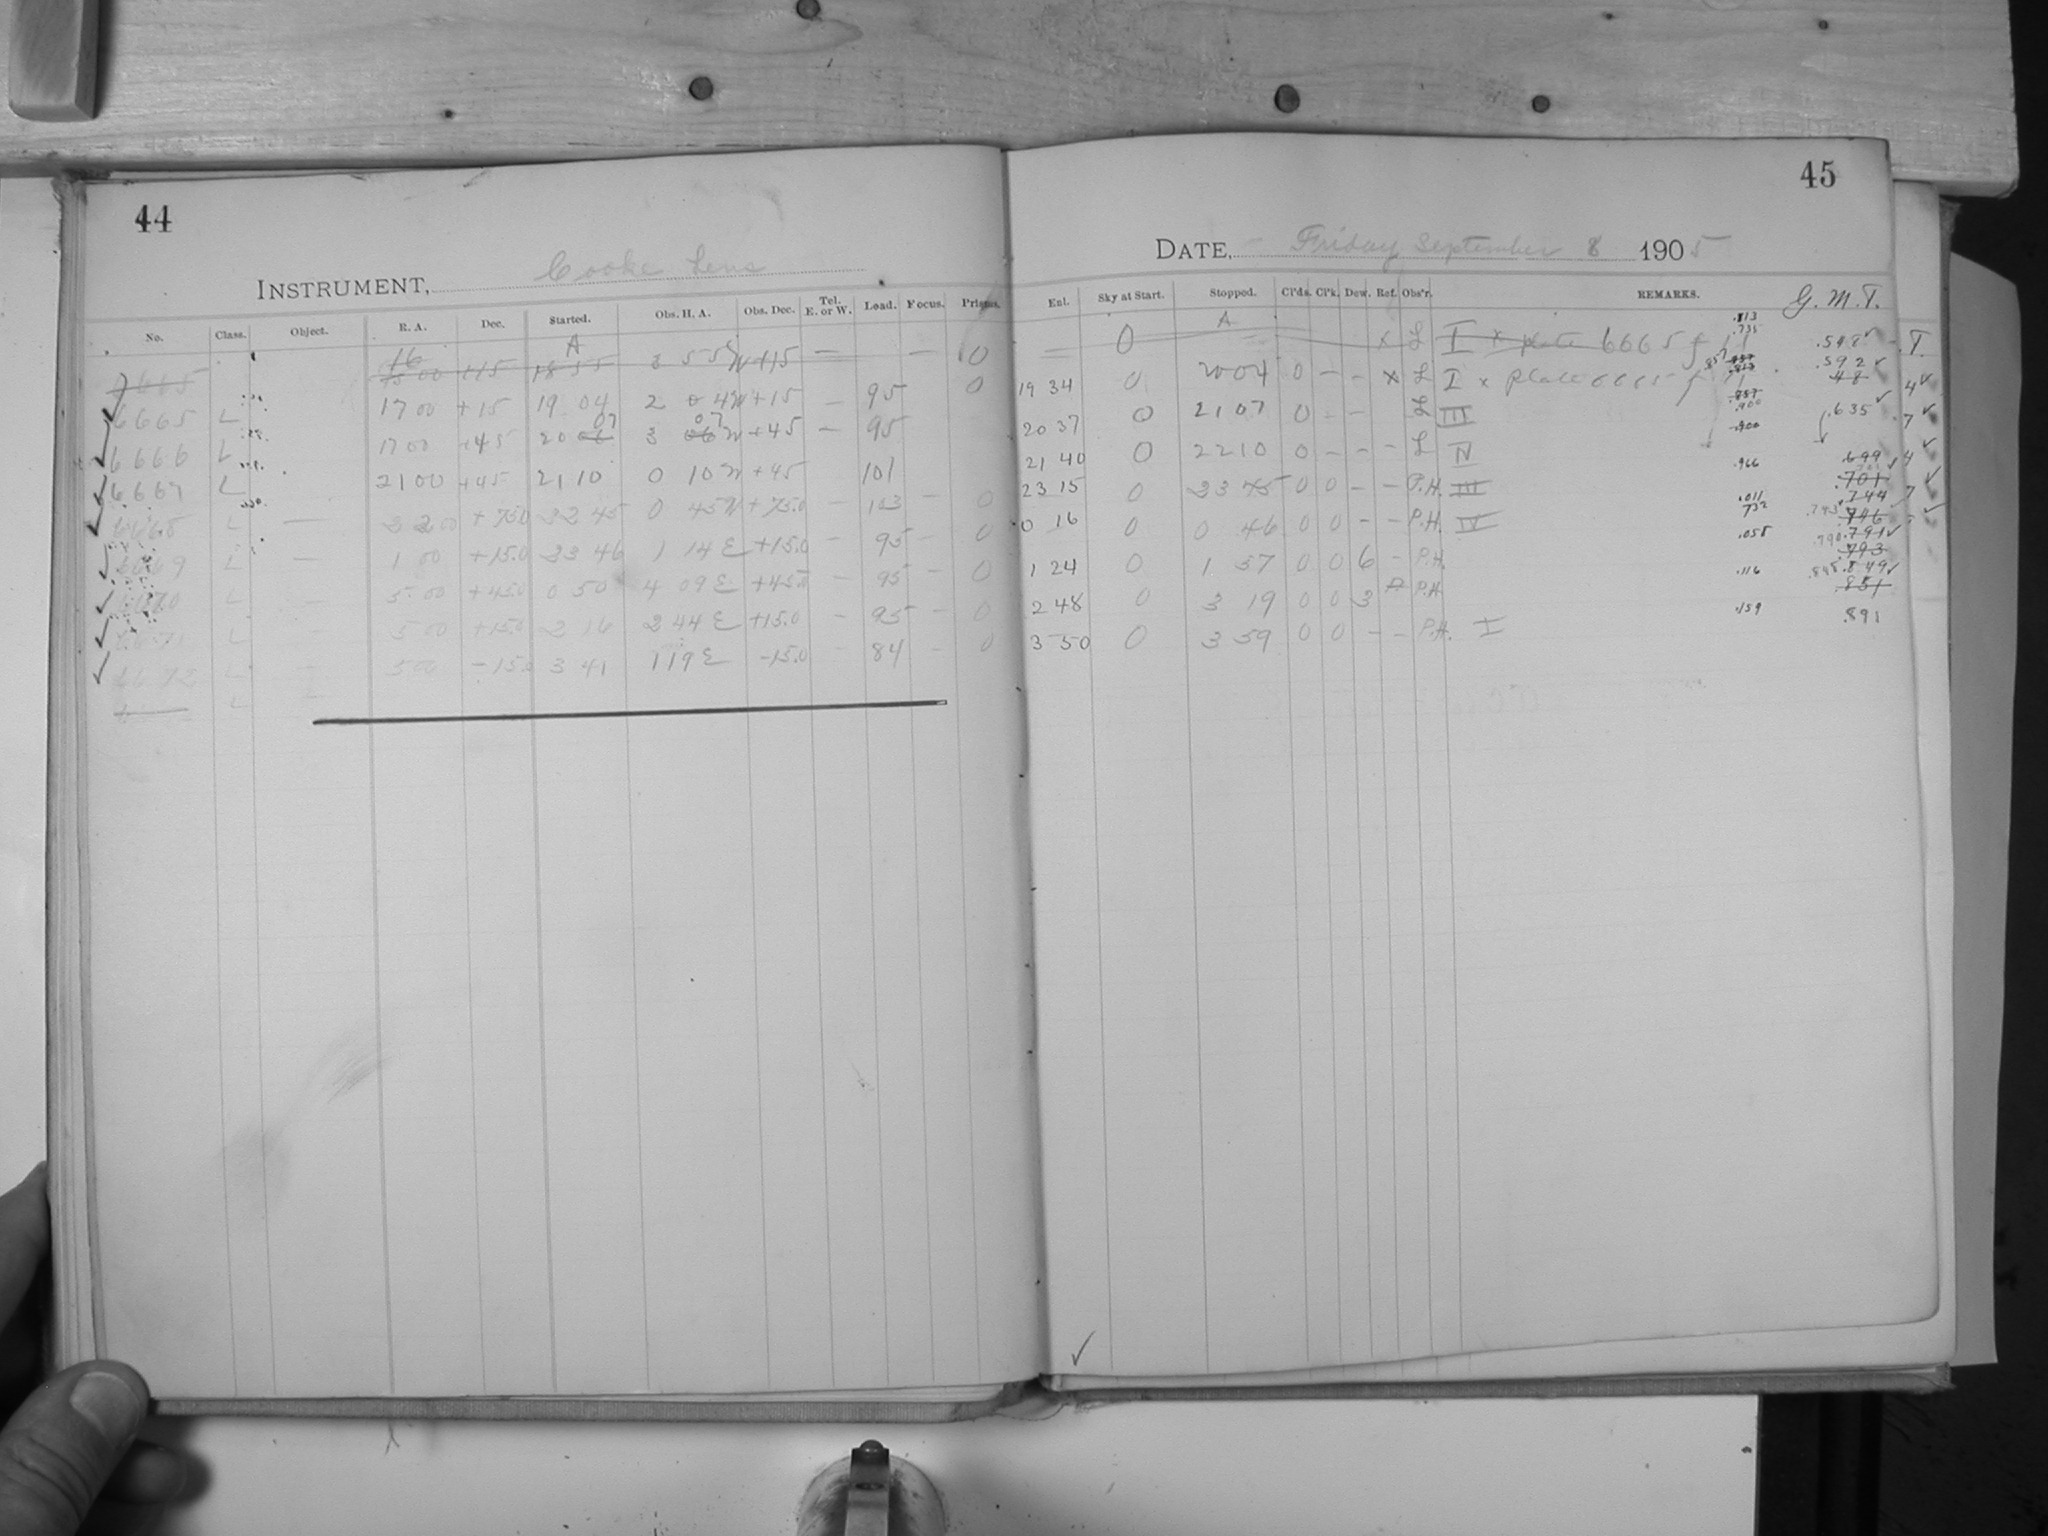 44
INSTRUMENT, Cooke Lens
No. Class. Object. R. A. Dec. Started. Obs. H. A. Obs. Dec. Tel. E. or W. Load. Focus. Prisms.
16 A
6665 +15 18 55 3 55 W +15 — — 0
6665 L 17 00 +15 19 04 2 04 W +15 — 95 0
6666 L 17 00 +45 20 07 3 07 W +45 — 95
6667 L 21 00 +45 21 10 0 10 W +45 101
6668 L — 22 00 +75.0 22 45 0 45 W +75.0 — 103 — 0
6669 L — 1 00 +15.0 23 46 1 14 E +15.0 — 95 — 0
6670 L — 5 00 +45.0 0 50 4 09 E +45.0 — 95 — 0
6671 L 5 00 +15.0 2 16 2 44 E +15.0 — 95 — 0
6672 L 5 00 -15.0 3 41 1 19 E -15.0 84 — 0
45
DATE, Friday September 8 1905
Enl. Sky at Start. Stopped. Cl'ds. Cl'k. Dew. Ref. Obs'r. REMARKS. G. M. T.
A
0 x L I x plate 6665 f .813 .735 .548
19 34 0 20 04 0 — — x L I x plate 6665 f .857 .592
20 37 0 21 07 0 — — L III .900 .635
21 40 0 22 10 0 — — — L IV .900
23 15 0 23 75 0 0 — — P.H. III .966 .699 .701
0 16 0 0 46 0 0 — — P.H. IV .011 .732 .744 .746
1 24 0 1 57 0 0 6 — P.H. .055 .790 .791 .793
2 48 0 3 19 0 0 3 P.H. .116 .848 .849 .851
3 50 0 3 59 0 0 — — P.H. I .159 .891